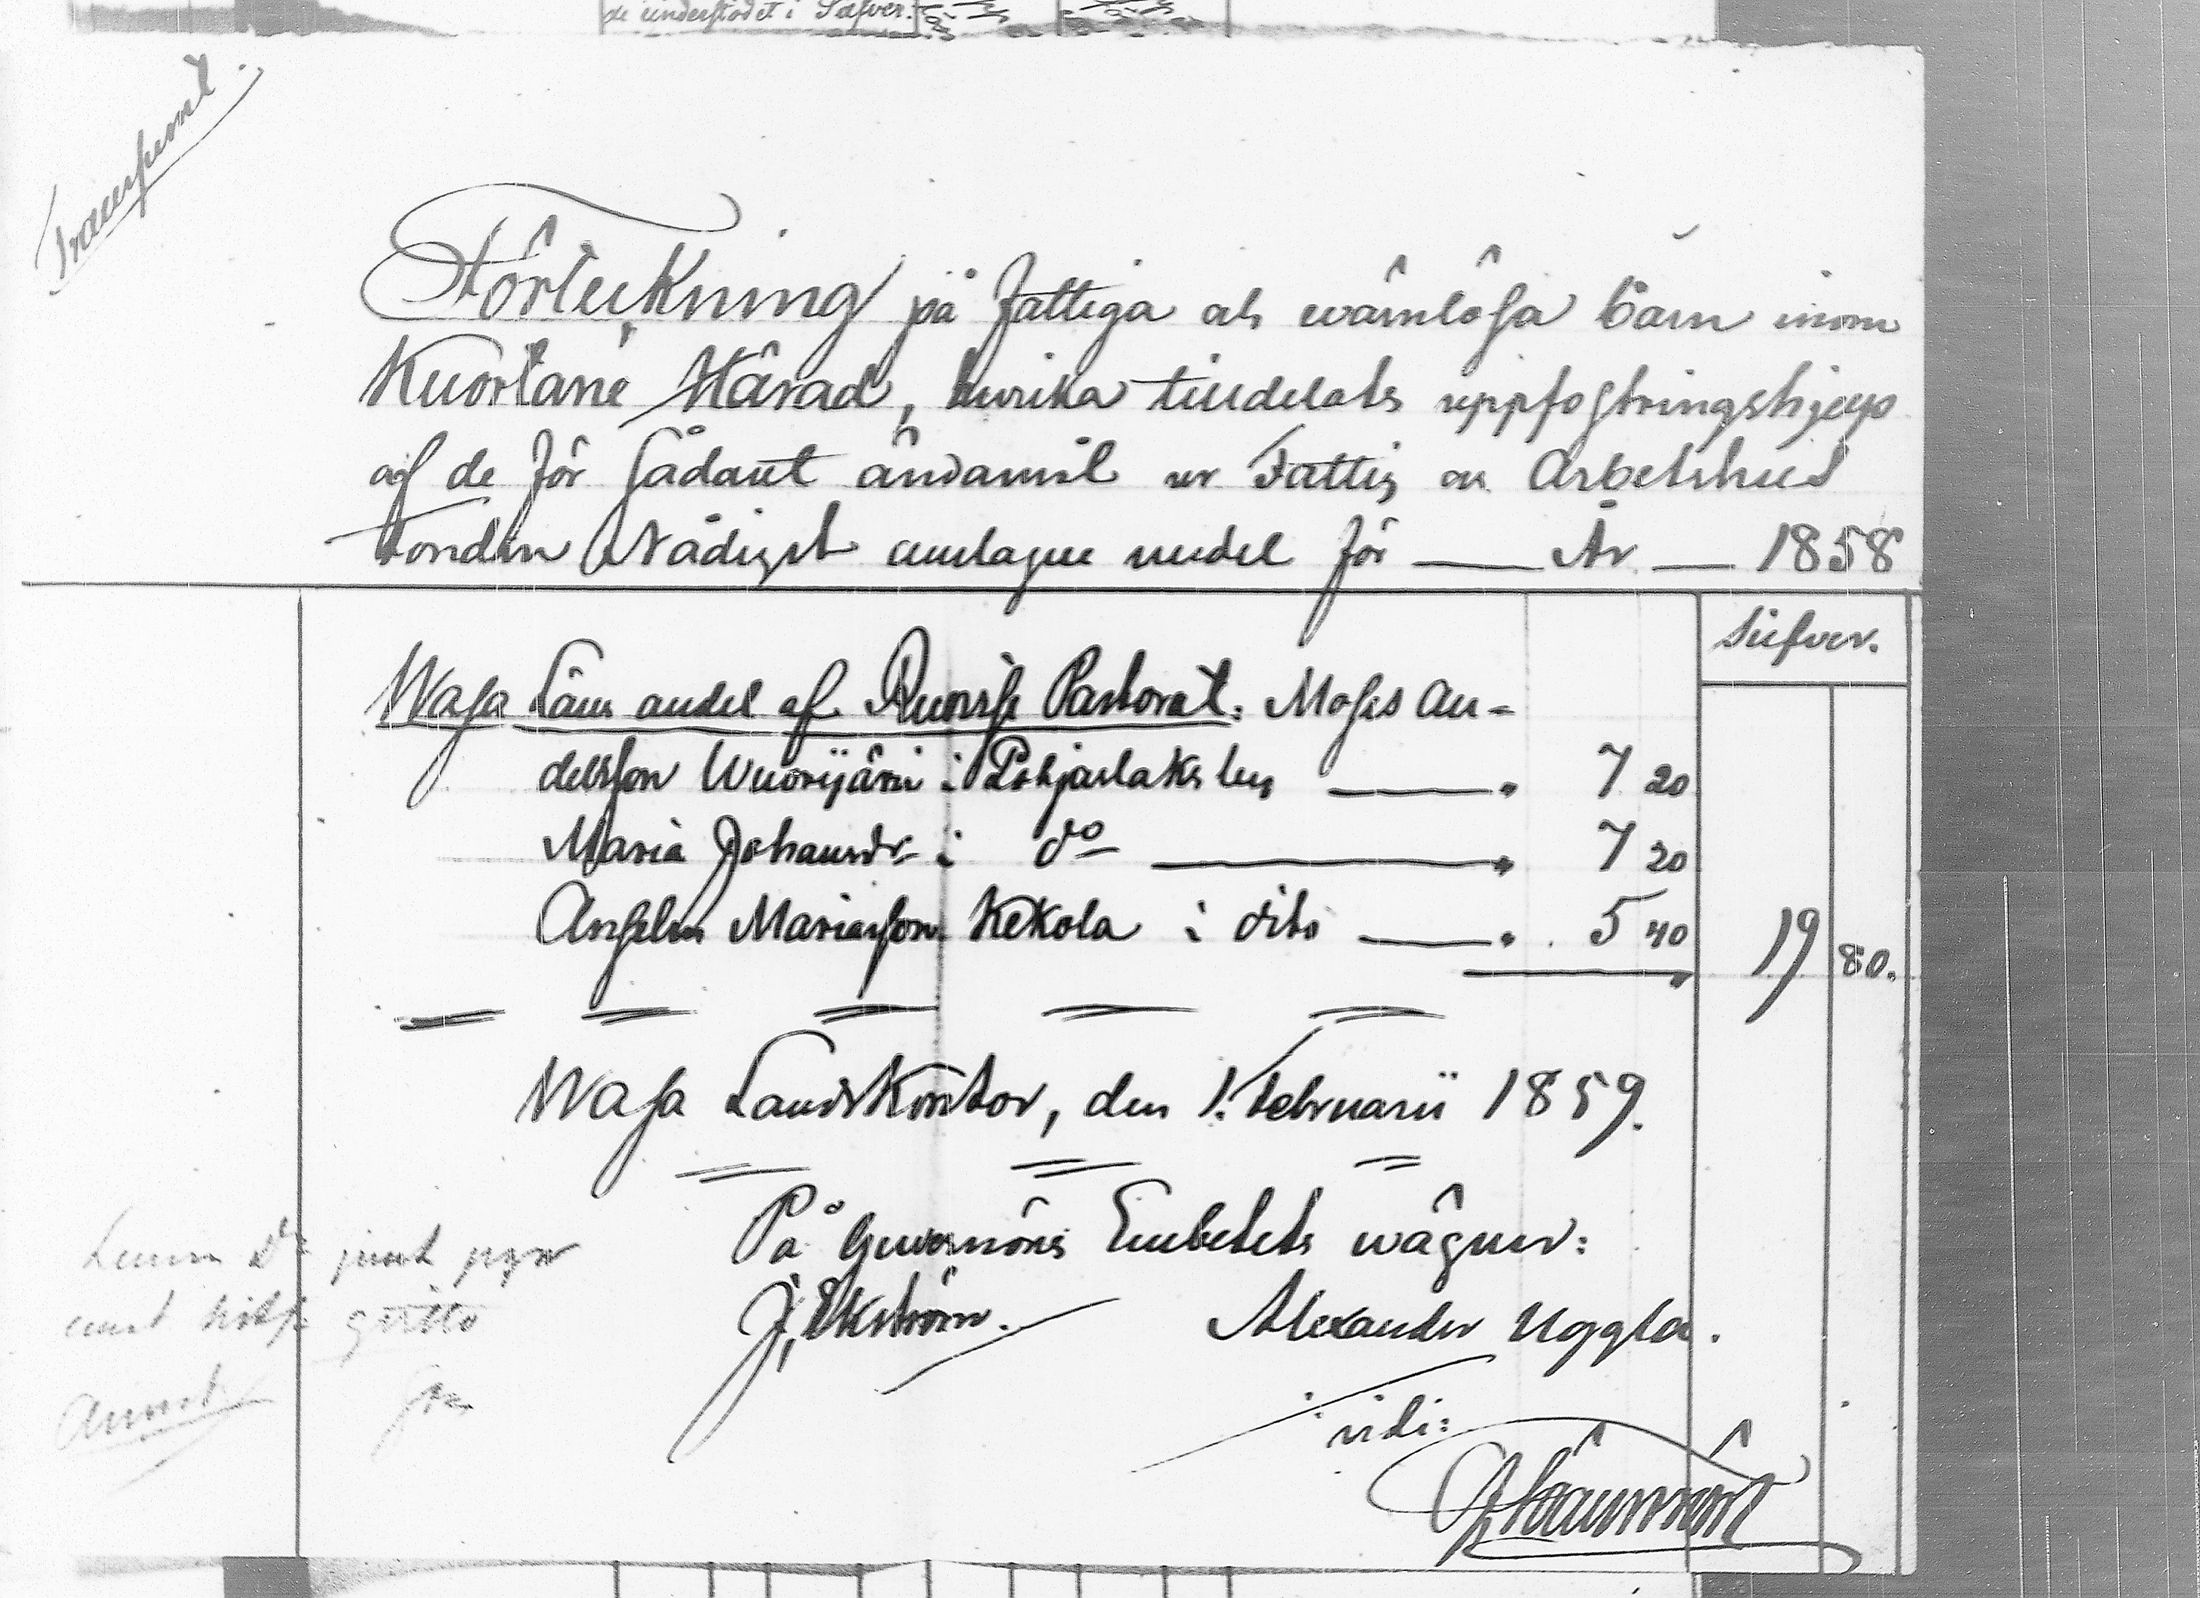 de understödet i Silfver.
Transsumt.
Förteckning på fattiga och wärnlösa barn inom
Kuortane Härad, hwilka tilldelats uppfostringshjelp
af de för sådant ändamål ur Fattig och Arbetshus
Fonden Nådigst anslagne medel för — År — 1858
Silfver.
Wasa Läns andel af Ruowesi Pastorat: Moses An-
dersson Wuorijärvi i Pohjaslaks by — " 7 20
Maria Johansdr i do — " 7 20
Anselm Mariasson Kekola i dito — " 5 40 19 80.
Wasa Landskontor, den 1. Februarii 1859.
På Guvernörs Embetets wägnar:
J. Ekström. Alexander Uggla.
vidi: